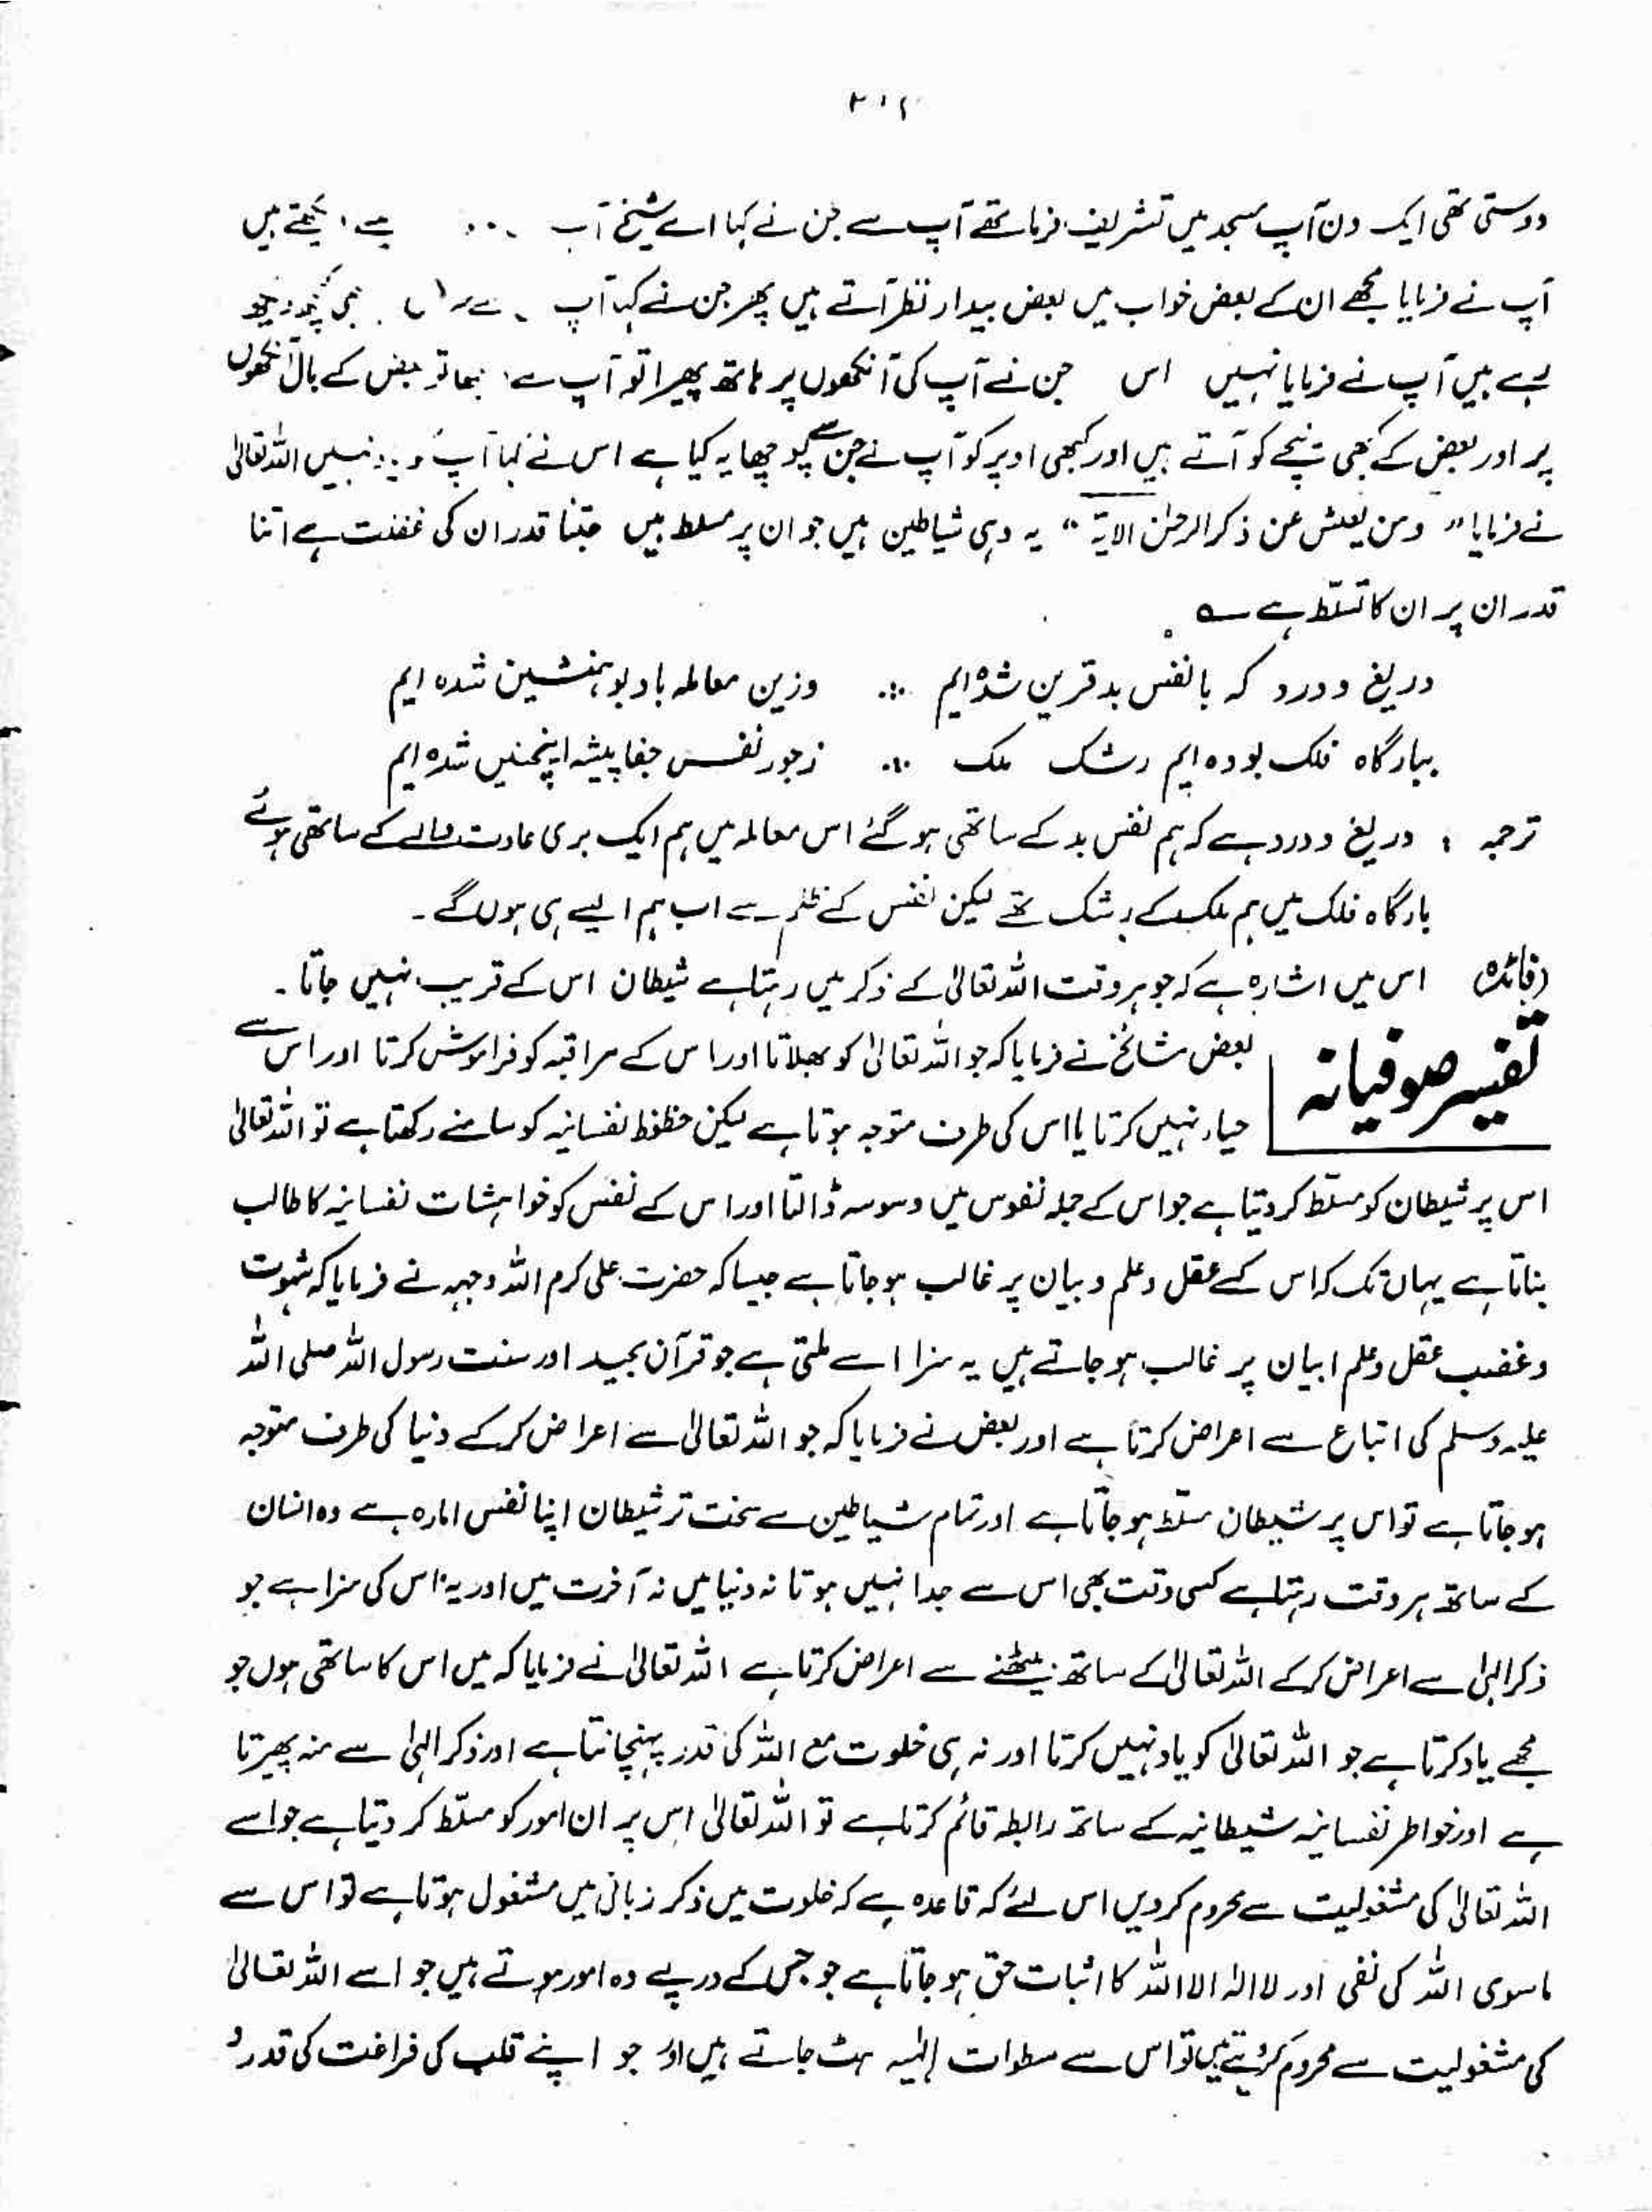 دوستی تھی ایک دن آپ مسجد میں تشریف فرما تھے آپ سے جن نے کہا اے شیخ آپ دیکھتے ہیں
آپ نے فرمایا مجھے ان کے بعض خواب میں بعض بیدار نظر آتے ہیں پھر جن نے کہا آپ
رہے ہیں آپ نے فرمایا نہیں اس جن نے آپ کی آنکھوں پر ہاتھ پھیرا تو آپ بعض کے بال آنکھوں
پر اور بعض کے کبھی نیچے کو آتے ہیں اور کبھی اوپر کو آپ نے جن سے پوچھا یہ کیا ہے اس نے کہا آپ کو یاد نہیں اللہ تعالیٰ
نے فرمایا " ومن یعش عن ذکر الرحمٰن الایۃ " یہ وہی شیاطین ہیں جو ان پر مسلط ہیں جتنا قدر ان کی غفلت ہے اتنا
قدر ان پر ان کا تسلّط ہے ؎
دریغ و درد کہ با نفس بد قرین شدہ ایم ∴ وزین معاملہ با دیو ہمنشین شدہ ایم
ببارگاہ فلک بودہ ایم رشک ملک ∴ ز جور نفس جفا پیشہ اینچنیں شدہ ایم
ترجمہ : دریغ و درد ہے کہ ہم نفس بد کے ساتھی ہو گئے اس معاملہ میں ہم ایک بری عادت والے کے ساتھی ہوئے
بارگاہ فلک میں ہم ملک کے رشک تھے لیکن نفس کے ظلم سے اب ہم ایسے ہی ہوں گے ۔
(فائدہ) اس میں اشارہ ہے کہ جو ہر وقت اللہ تعالیٰ کے ذکر میں رہتا ہے شیطان اس کے قریب نہیں جاتا ۔
تفسیر صوفیانہ
بعض مشائخ نے فرمایا کہ جو اللہ تعالیٰ کو بھلاتا اور اس کے مراقبہ کو فراموش کرتا اور اس سے
حیاء نہیں کرتا یا اس کی طرف متوجہ ہوتا ہے لیکن حظوظ نفسانیہ کو سامنے رکھتا ہے تو اللہ تعالیٰ
اس پر شیطان کو مسلّط کر دیتا ہے جو اس کے جملہ نفوس میں وسوسہ ڈالتا اور اس کے نفس کو خواہشات نفسانیہ کا طالب
بناتا ہے یہاں تک کہ اس کے عقل و علم و بیان پر غالب ہو جاتا ہے جیسا کہ حضرت علی کرم اللہ وجہہ نے فرمایا کہ شہوت
و غضب عقل و علم ابیان پر غالب ہو جاتے ہیں یہ سزا اسے ملتی ہے جو قرآن مجید اور سنت رسول اللہ صلی اللہ
علیہ وسلم کی اتباع سے اعراض کرتا ہے اور بعض نے فرمایا کہ جو اللہ تعالیٰ سے اعراض کر کے دنیا کی طرف متوجہ
ہو جاتا ہے تو اس پر شیطان مسلّط ہو جاتا ہے اور تمام شیاطین سے سخت تر شیطان اپنا نفس امارہ ہے وہ انسان
کے ساتھ ہر وقت رہتا ہے کسی وقت بھی اس سے جدا نہیں ہوتا نہ دنیا میں نہ آخرت میں اور یہ اس کی سزا ہے جو
ذکر الہٰی سے اعراض کر کے اللہ تعالیٰ کے ساتھ بیٹھنے سے اعراض کرتا ہے اللہ تعالیٰ نے فرمایا کہ میں اس کا ساتھی ہوں جو
مجھے یاد کرتا ہے جو اللہ تعالیٰ کو یاد نہیں کرتا اور نہ ہی خلوت مع اللہ کی قدر پہنچانتا ہے اور ذکر الہٰی سے منہ پھیرتا
ہے اور خواطر نفسانیہ شیطانیہ کے ساتھ رابطہ قائم کرتا ہے تو اللہ تعالیٰ اس پر ان امور کو مسلّط کر دیتا ہے جو اسے
اللہ تعالیٰ کی مشغولیت سے محروم کر دیں اس لئے کہ قاعدہ ہے کہ خلوت میں ذکر زبانی میں مشغول ہوتا ہے تو اس سے
ماسوی اللہ کی نفی اور لا الہ الا اللہ کا اثبات حق ہو جاتا ہے جو جس کے درپے وہ امور ہوتے ہیں جو اسے اللہ تعالیٰ
کی مشغولیت سے محروم کر دیتے ہیں تو اس سے سطوات الٰہیہ ہٹ جاتے ہیں اور جو اپنے قلب کی فراغت کی قدر و